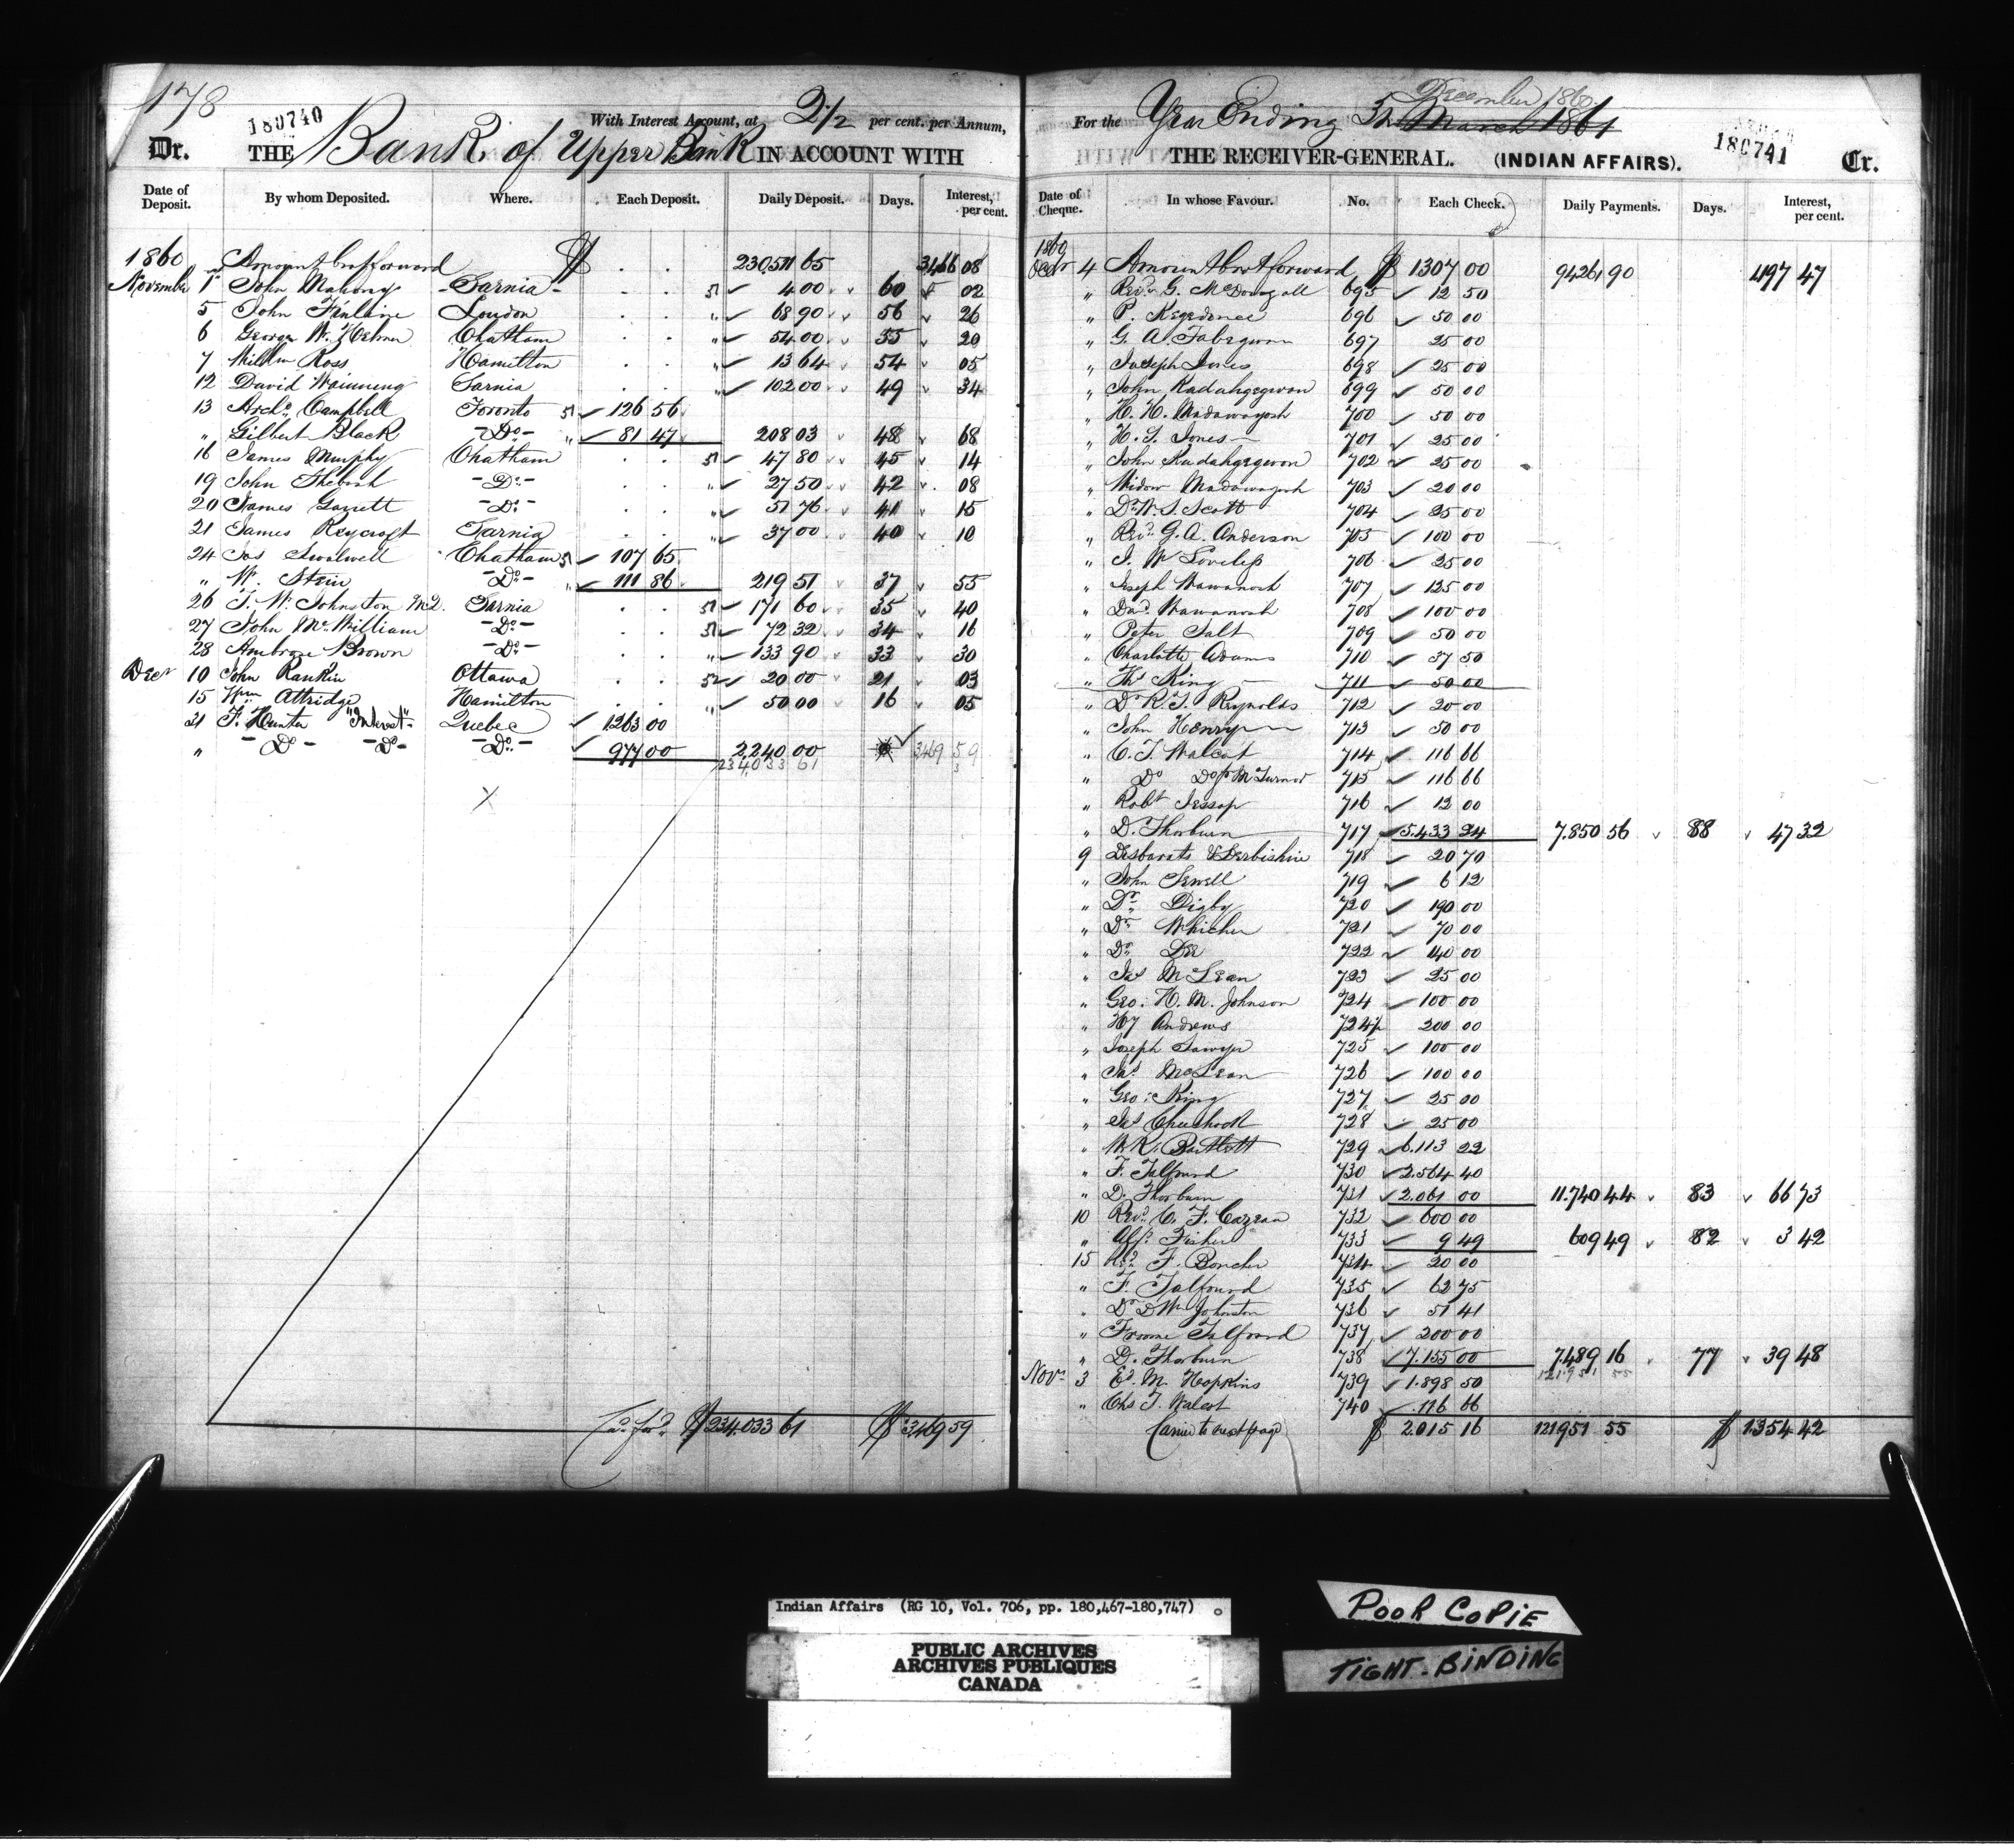 178
180740
With Interest Account, at 2½ per cent. per Annum,
Dr. THE Bank of Upper Bank IN ACCOUNT WITH
Date of Deposit. By whom Deposited. Where. Each Deposit. Daily Deposit. Days. Interest, per cent.
1860 Amount brot forward $ 230511 65 3466 08
November 1 John Mahony Sarnia 51 4 00 60 02
5 John Finlaine London " 68 90 56 26
6 George W. Chatham " 54 00 55 20
7 Willm Ross Hamilton " 13 64 54 05
12 David Wainning Sarnia " 102 00 49 34
13 Archd. Campbell Toronto 51 126 56
" Gilbert Black Do " 81 47 208 03 48 68
16 James Murphy Chatham 51 47 80 45 14
19 John Do " 27 50 42 08
20 James Garrett Do 51 76 41 15
21 James Reycroft Sarnia " 37 00 40 10
24 Jas Swalwell Chatham 51 107 65
" W. Stein Do " 111 86 219 51 37 55
26 T. W. Johnston M.D. Sarnia 51 171 60 35 40
27 John McWilliam Do 51 72 32 34 16
28 Ambrose Brown Do " 133 90 33 30
Decr 10 John Rankin Ottawa 52 20 00 21 03
15 Wm Attridge Hamilton " 50 00 16 05
31 F. Hunter "Interest" Quebec 1263 00
" Do Do Do 977 00 2,240 00 3469 59
234,033 61
X
Cd. ford. $ 234,033 61 $ 3,469 59
December 1860
For the Year Ending 31 March 1861
180741
THE RECEIVER-GENERAL. (INDIAN AFFAIRS). Cr.
Date of Cheque. In whose Favour. No. Each Check. Daily Payments. Days. Interest, per cent.
1860
Octr 4 Amount brot forward $ 1307 00 94261 90 1197 47
" Revd. G. McDougall 695 12 50
" P. Kegedonce 696 50 00
" G. A. Tabegwon 697 25 00
" Joseph Jones 698 25 00
" John Kadahgegwon 699 50 00
" H. H. Madawayosh 700 50 00
" H. S. Jones 701 25 00
" John Kadahgegwon 702 25 00
" Widow Madawayosh 703 20 00
" Dr W. S. Scott 704 25 00
" Revd. G. A. Anderson 705 100 00
" J. W 706 25 00
" Joseph Wawanosh 707 125 00
" Davd Wawanosh 708 100 00
" Peter Salt 709 50 00
" Charlotte Adams 710 37 50
" Ths King 711 50 00
" Dr R. T. Reynolds 712 20 00
" John Henry 713 50 00
" C. T. Walcot 714 116 66
" Do Do Turnor 715 116 66
" Robt Jessop 716 12 00
" D. Thorburn 717 5.433 24 7.850 56 88 47 32
9 Desbarats & Derbishire 718 20 70
" John Sewell 719 6 12
" Dr. Digby 720 190 00
" Dr Whicher 721 70 00
" Dr. Dee 722 140 00
" Jas McLean 723 25 00
" Geo. H. M. Johnson 724 100 00
" Hy Andrews 724½ 200 00
" Joseph Sawyer 725 100 00
" Jas McLean 726 100 00
" Geo: King 727 25 00
" Jas Cheechock 728 25 00
" W. R. Bartlett 729 6.113 22
" F. Talfourd 730 2.564 40
" D. Thorburn 731 2.061 00 11.740 44 83 66 73
10 Revd. C. F. Cazeau 732 600 00
" Alfd. Fisher 733 9 49 609 49 82 3 42
15 F. Boucher 734 20 00
" F. Talfourd 735 62 75
" Dr D W Johnston 736 51 41
" Froome Talfourd 737 200 00
" D. Thorburn 738 7.155 00 7.489 16 77 39 48
121951 55
Novr 3 Ed. M. Hopkins 739 1.898 50
" Chs T. Walcot 740 116 66
Carried to next page $ 2.015 16 121951 55 $ 1.354 42
Indian Affairs (RG 10, Vol. 706, pp. 180,467-180,747)
PUBLIC ARCHIVES
ARCHIVES PUBLIQUES
CANADA
POOR COPIE
TIGHT-BINDING